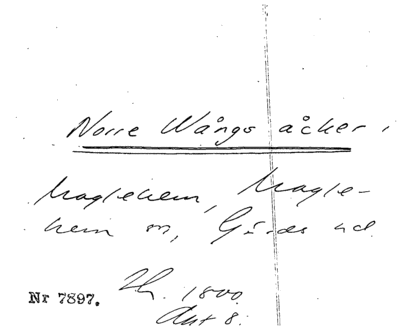 Norre Wångs åcker,
Maglehem, Magle-
hem sn, Gärds hd
Nr 7897.
1800.
Akt 8.